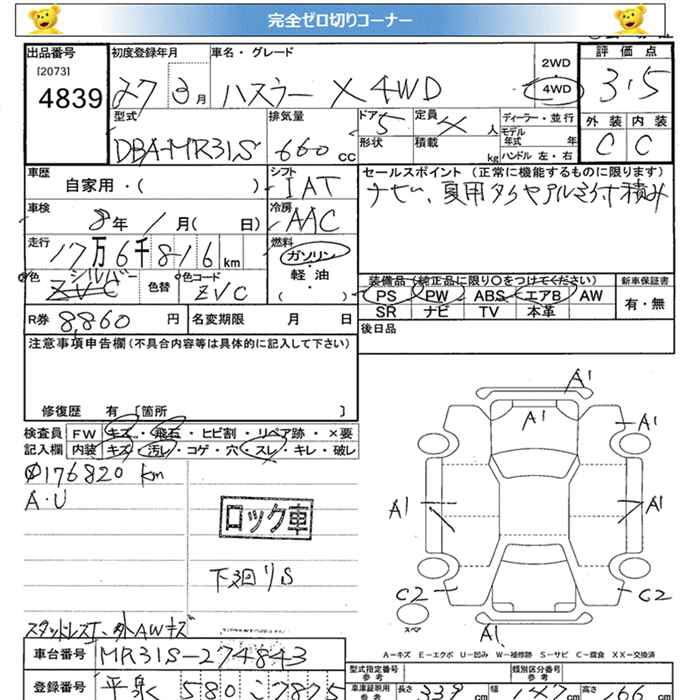 完全ゼロ切りコーナー
出品番号 初度登録年月 車名・グレード 評価点
[2073]
4839 27 3月 ハスラー X 4WD 2WD 4WD 3.5
型式 排気量 ドア 定員 ディーラー・並行 外装 内装
DBA-MR31S 660cc 5 4人 モデル年式 年 C C
形状 積載 kg ハンドル 左・右
車歴 シフト セールスポイント (正常に機能するものに限ります)
自家用・( ) IAT ナビ、夏用タイヤアルミ付積み
車検 冷房
8年 1月( 日) AAC
走行 燃料
17万6千816km ガソリン・軽油 ( ・ )
色 シルバー 色替 色コード 装備品(純正品に限り〇をつけてください) 新車保証書
ZVC ZVC PS PW ABS エアB AW 有・無
R券 8,860円 名変期限 月 日 SR ナビ TV 本革
注意事項申告欄(不具合内容等は具体的に記入して下さい) 後日品
修復歴 有 [箇所 ]
検査員 FW キズ・飛石・ヒビ割・リペア跡・×要
記入欄 内装 キズ・汚レ・コゲ・穴・スレ・キレ・破レ
176820km
A・U
ロック車
下廻りS
A1
A1 A1
A1 A1
C2 C2
スペア
A1
スタッドレス 外AWキズ
A=キズ E=エクボ U=凹み W=補修跡 S=サビ C=腐食 XX=交換済
車台番号 MR31S-274843 型式指定番号 参考 類別区分番号 参考
登録番号 580 こ7875 車庫証明用 参考 長さ 339cm 幅 147cm 高さ 166cm